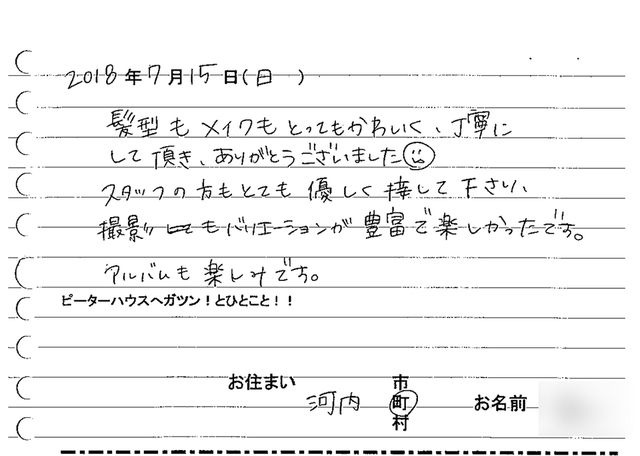 2018年7月15日(日 )
髪型もメイクもとってもかわいく、丁寧に
して頂き、ありがとうございました
スタッフの方もとても優しく接して下さい、
撮影もバリエーションが豊富で楽しかったです。
アルバムも楽しみです。
ピーターハウスへガツン！とひとこと！！
お住まい 河内 市町村 お名前